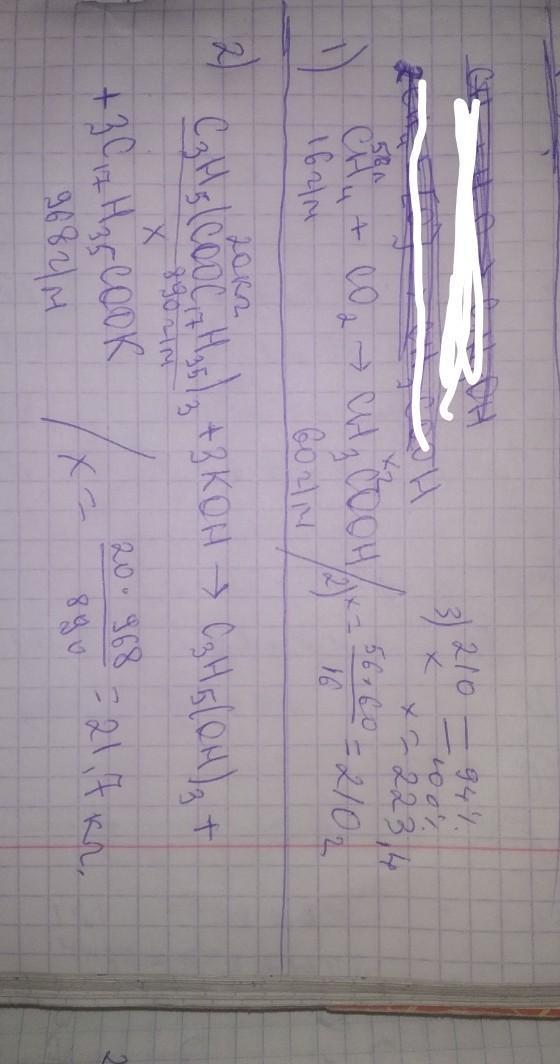 1)
56л х г
CH₄ + CO₂ → CH₃COOH
16г/м 60г/м
2) x = 56·60 / 16 = 210г
3) 210 = 94%
x = 100%
x = 223,4
2)
20кг
C₃H₅(COOC₁₇H₃₅)₃ + 3KOH → C₃H₅(OH)₃ +
x 890г/м
+ 3C₁₇H₃₅COOK
968г/м
x = 20·968 / 890 = 21,7 кг.
2